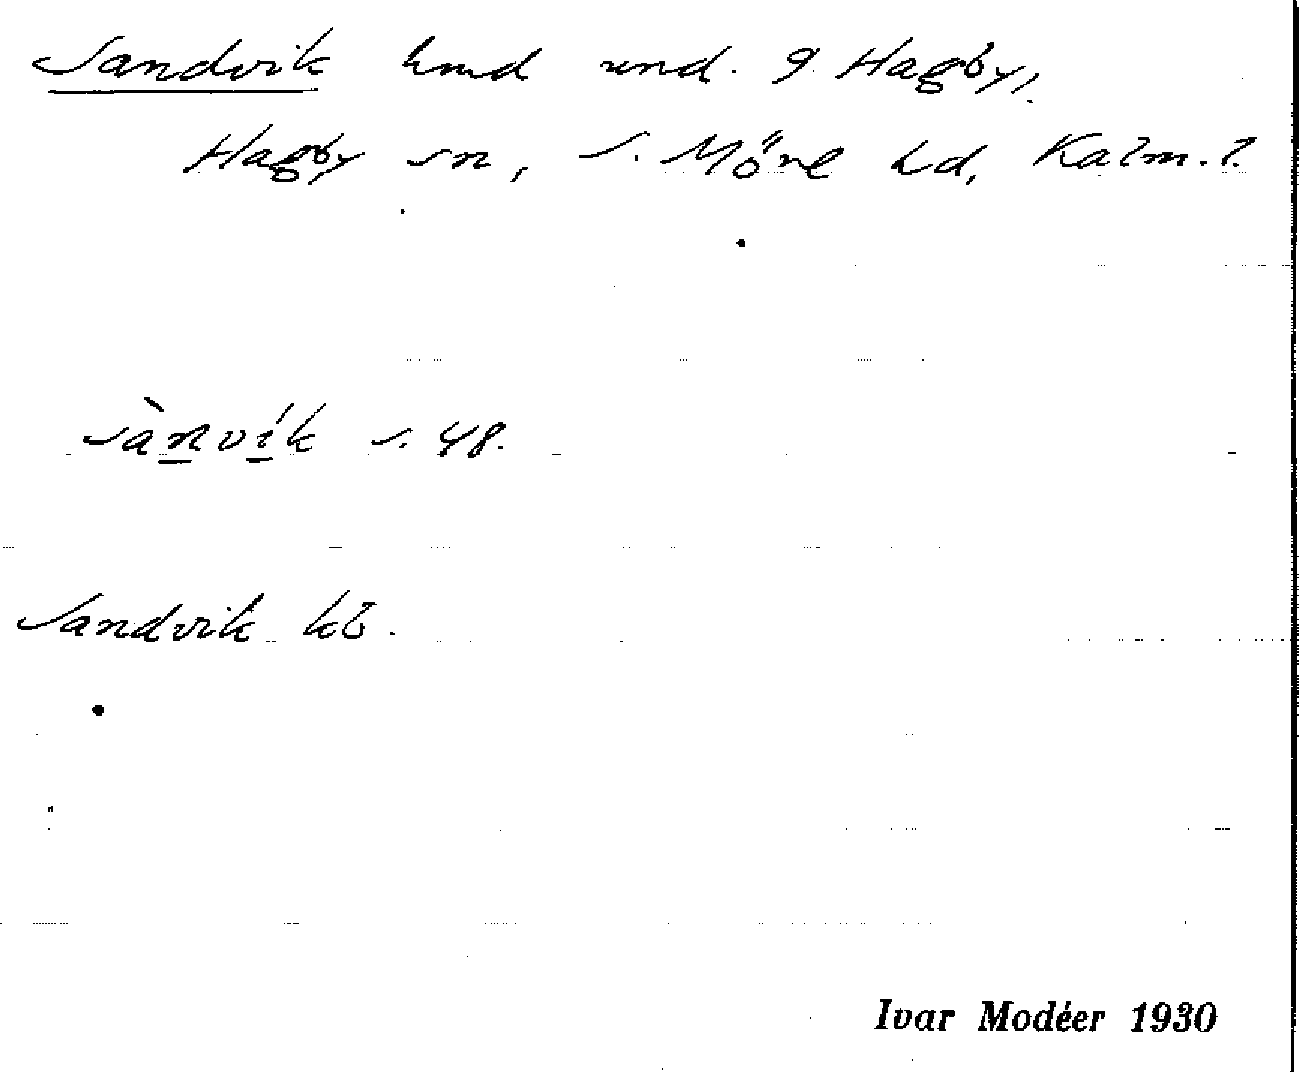 Sandvik lmd und. 9 Hagby,
Hagby sn, S. Möre hd, Kalm. l.
sànvík s. 48.
Sandvik kö.
Ivar Modéer 1930